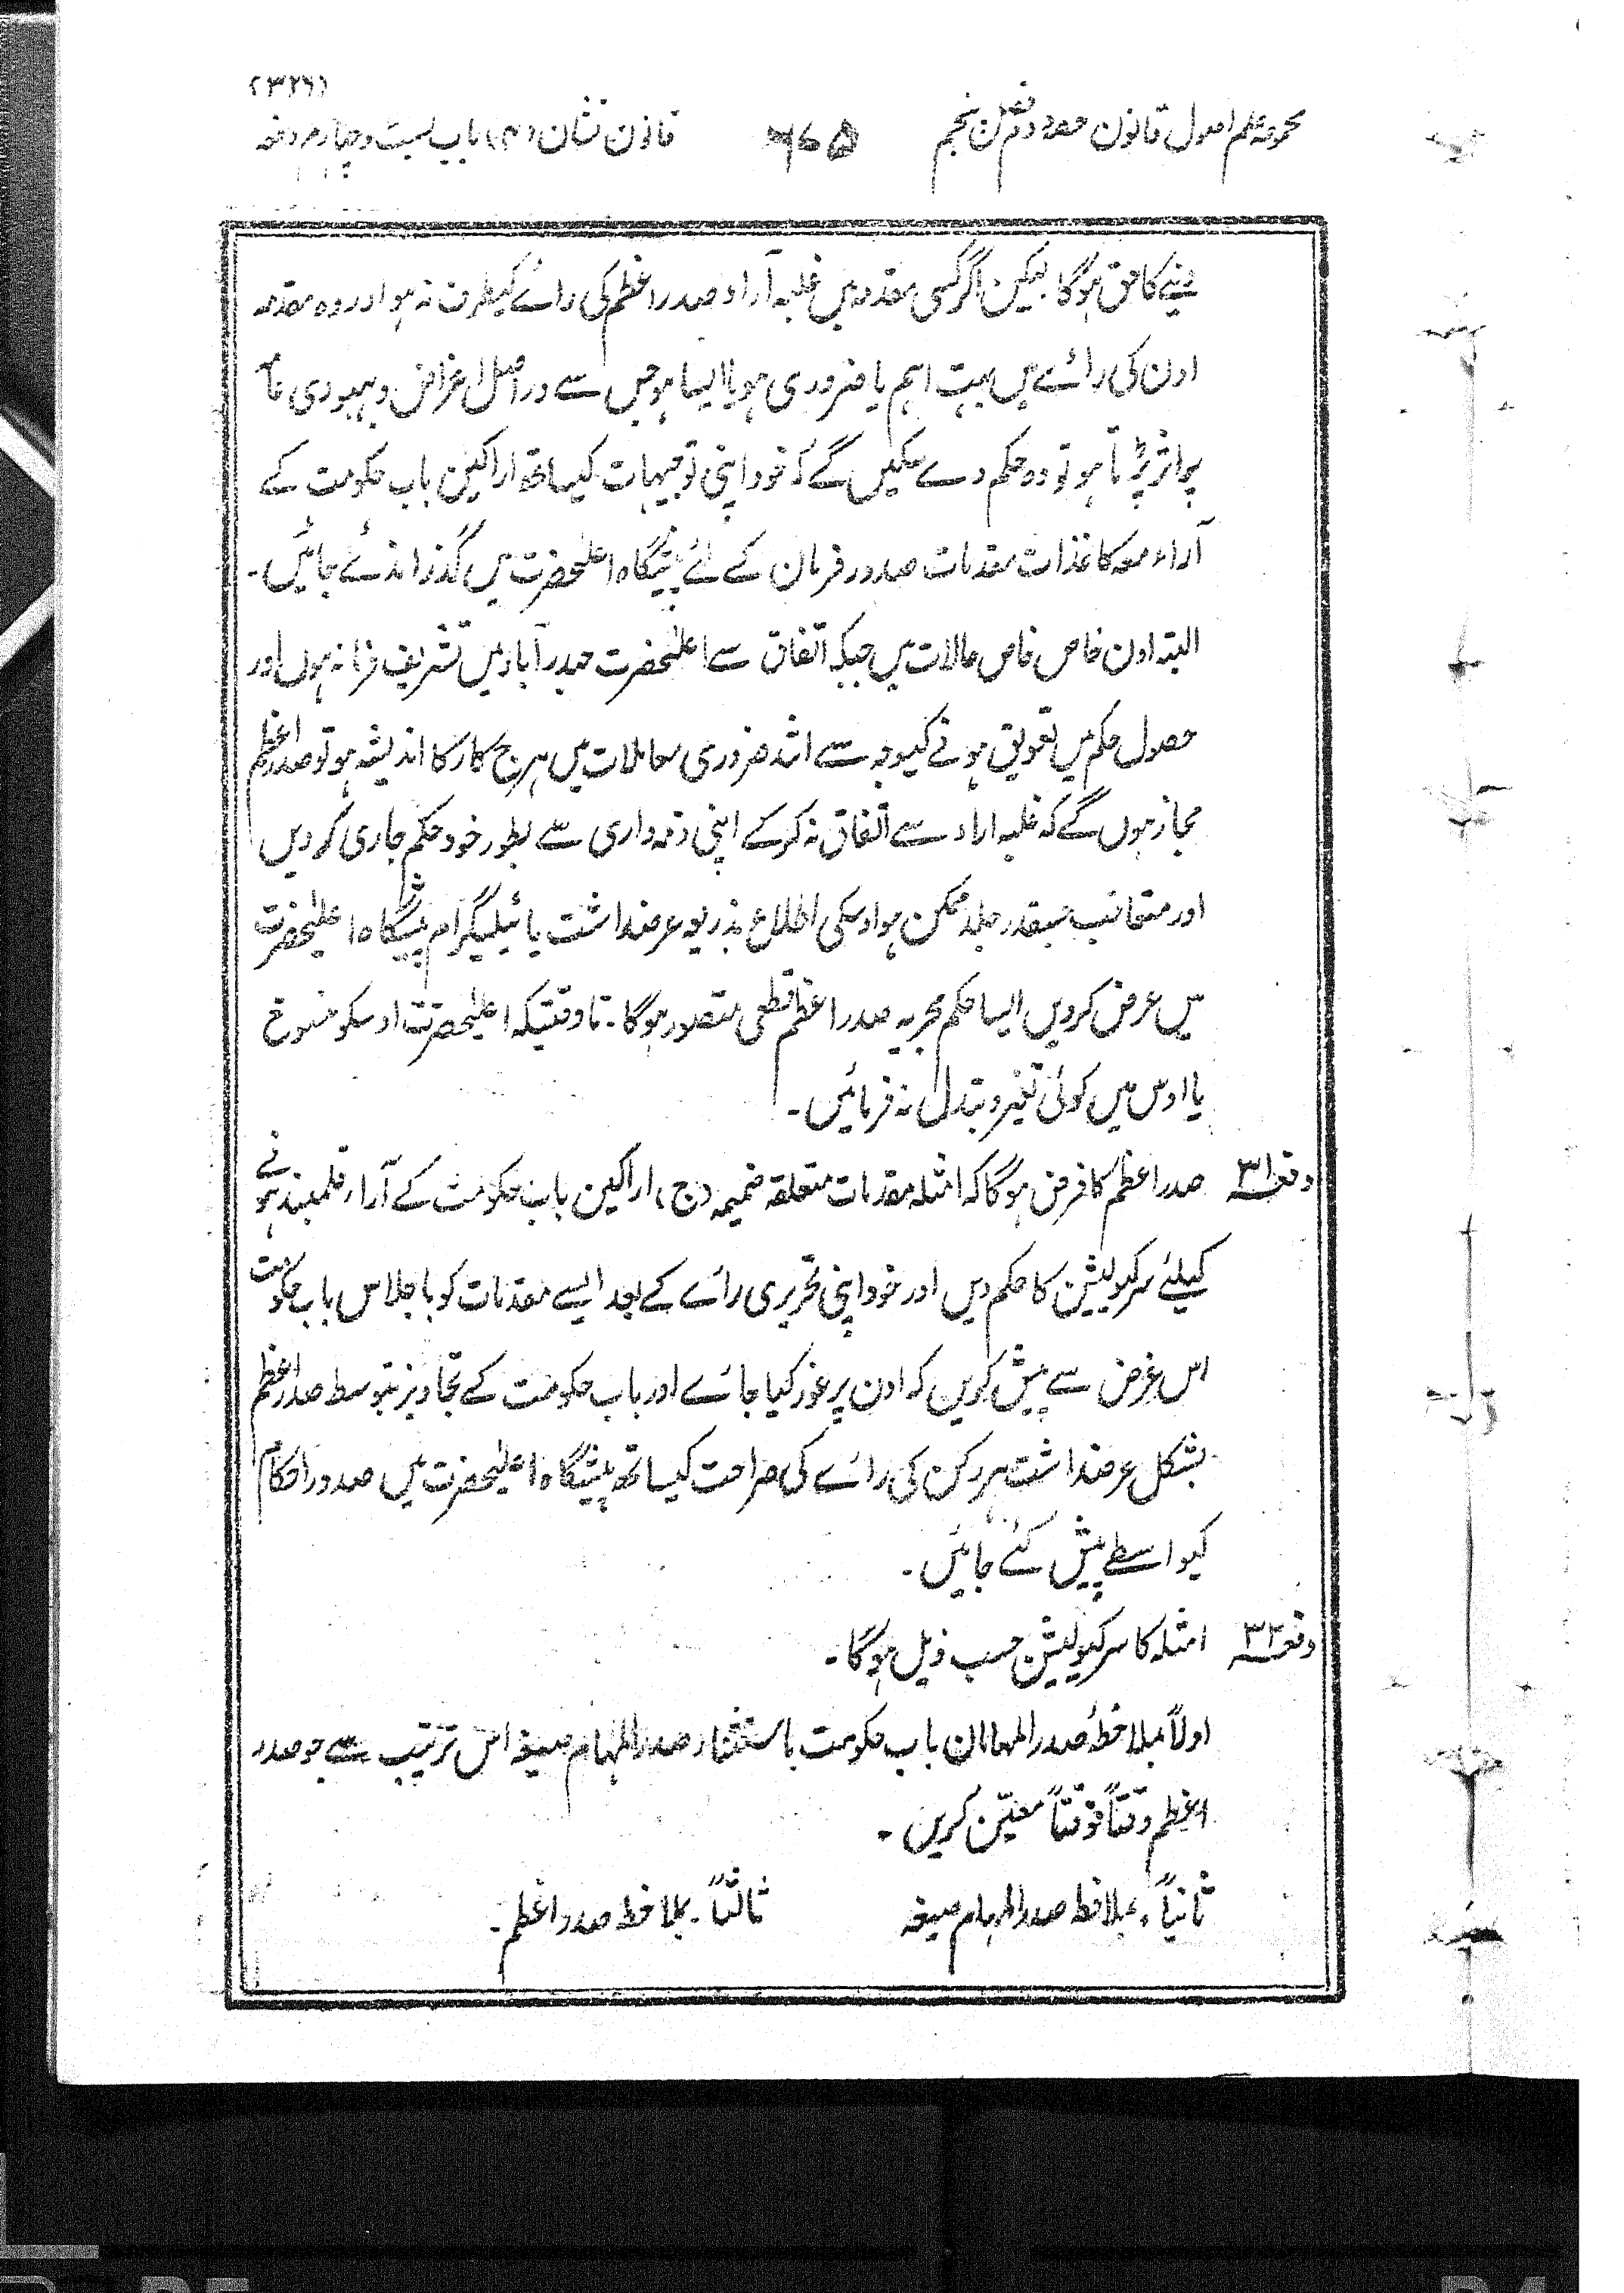 (۳۲۶)
مجموعہ علم اصول قانون حصہ دوم فصل پنجم
قانون نشان (۴) باب بست و چہارم دفعہ
دینے کا حق ہوگا لیکن اگر کسی مقدمہ میں غلبہ آراء صدر اعظم کی رائے کیطرف نہ ہو اور وہ مقدمہ
اون کی رائے میں بہت اہم یا ضروری ہو یا ایسا ہو جس سے دراصل اغراض و بہبودی عامہ
پر اثر پڑتا ہو تو وہ حکم دے سکیں گے کہ خود اپنی توجیہات کیساتھ اراکین باب حکومت کے
آراء معہ کاغذات مقدمات صدور فرمان کے لئے پیشگاہ اعلیٰحضرت میں گذرانے جائیں۔
البتہ اون خاص خاص حالات میں جبکہ اتفاق سے اعلیٰحضرت حیدرآباد میں تشریف فرما نہ ہوں اور
حصول حکم میں تعویق ہونے کیوجہ سے اشد ضروری معاملات میں ہرج کار کا اندیشہ ہو تو صدر اعظم
مجاز ہوں گے کہ غلبہ اراء سے اتفاق نہ کر کے اپنی ذمہ داری سے بطور خود حکم جاری کر دیں
اور متعاقب جسقدر جلد ممکن ہو اوسکی اطلاع بذریعہ عرضداشت یا ٹیلیگرام پیشگاہ اعلیٰحضرت
میں عرض کر دیں ایسا حکم مجریہ صدر اعظم قطعی متصور ہوگا۔ تا وقتیکہ اعلیٰحضرت اوسکو منسوخ
یا اوس میں کوئی تغیر و تبدل نہ فرمائیں۔
دفعہ ۳۱ صدر اعظم کا فرض ہوگا کہ امثلہ مقدمات متعلقہ ضمیمہ (ج) اراکین باب حکومت کے آراء قلمبند ہونے
کیلئے سرکیولیشن کا حکم دیں اور خود اپنی تحریری رائے کے بعد ایسے مقدمات کو باجلاس باب حکومت
اس غرض سے پیش کریں کہ اون پر غور کیا جائے اور باب حکومت کے تجاویز بتوسط صدر اعظم
بشکل عرضداشت ہر رکن کی رائے کی صراحت کیساتھ پیشگاہ اعلیٰحضرت میں صدور احکام
کیواسطے پیش کئے جائیں۔
دفعہ ۳۲ امثلہ کا سرکیولیشن حسب ذیل ہوگا۔
اولاً بملاحظہ صدر المہامان باب حکومت باستثناء صدر المہام صیغہ اس ترتیب سے جو صدر
اعظم وقتاً فوقتاً معین کریں۔
ثانیاً۔ بملاحظہ صدر المہام صیغہ ثالثاً۔ بملاحظہ صدر اعظم۔